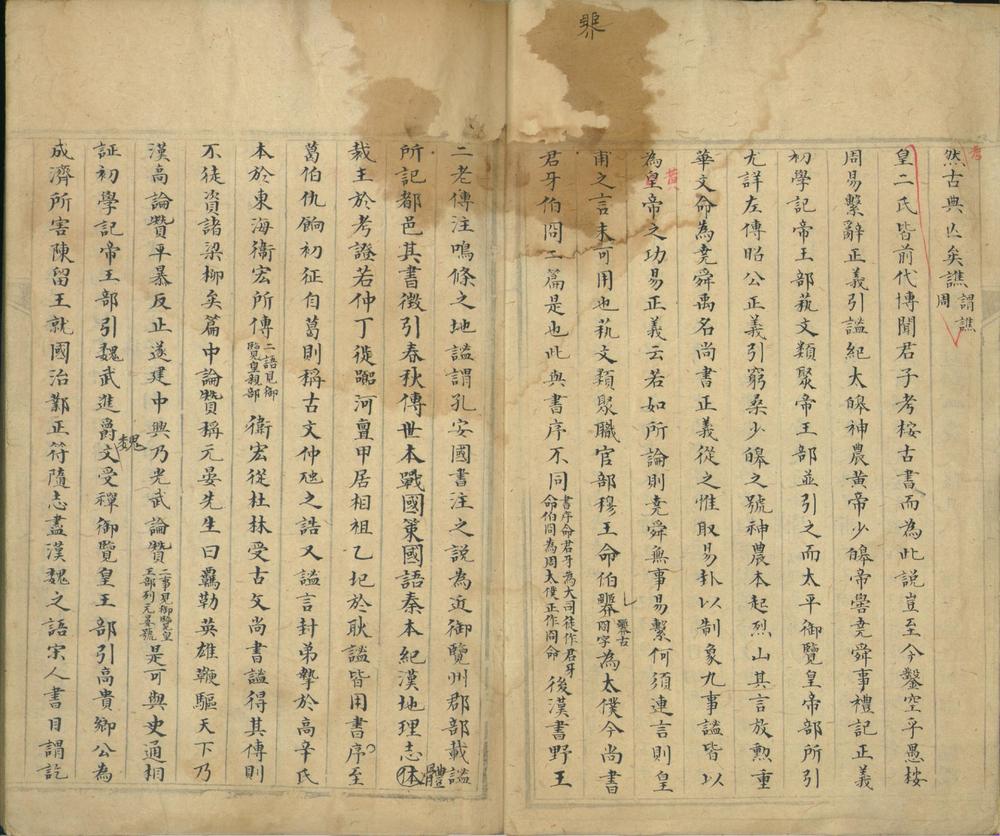 然古典亡矣譙謂譙周
皇二氏皆前代博聞君子考桉古書而為此說豈至今鑿空乎愚桉
周易繫辭正義引謐紀太皞神農黃帝少皞帝嚳堯舜事禮記正義
初學記帝王部蓺文類聚帝王部並引之而太平御覽皇帝部所引
尤詳左傳昭公正義引窮桑少皞之號神農本起烈山其言放勳重
華文命為堯舜禹名尚書正義從之惟取易卦以制象九事謐皆以
為皇帝之功易正義云若如所論則堯舜無事易繫何須連言則皇
黃
甫之言未可用也蓺文類聚職官部穆王命伯臩臩古冏字為太僕今尚書
君牙伯冏二篇是也此與書序不同書序命君牙為大司徒作君牙命伯冏為周太僕正作冏命後漢書野王
二老傳注鳴條之地謐謂孔安國書注之說為近御覽州郡部載謐
所記都邑其書徵引春秋傳世本戰國策國語秦本紀漢地理志體
裁王於考證若仲丁徙嚻河亶甲居相祖乙圯於耿謐皆用書序至
葛伯仇餉初征自葛則稱古文仲虺之誥又謐言封弟摯於高辛氏
本於東海衞宏所傳二語見御覽皇親部衞宏從杜林受古文尚書謐得其傳則
不徒資諸梁柳矣篇中論贊稱元晏先生曰羈勒英雄鞭驅天下乃
漢高論贊平暴反正遂建中興乃光武論贊二事見御覽皇王部列元晏號是可與史通相
証初學記帝王部引魏武進爵魏文受禪御覽皇王部引高貴鄉公為
成濟所害陳留王就國治鄴正符隋志盡漢魏之語宋人書目謂訖